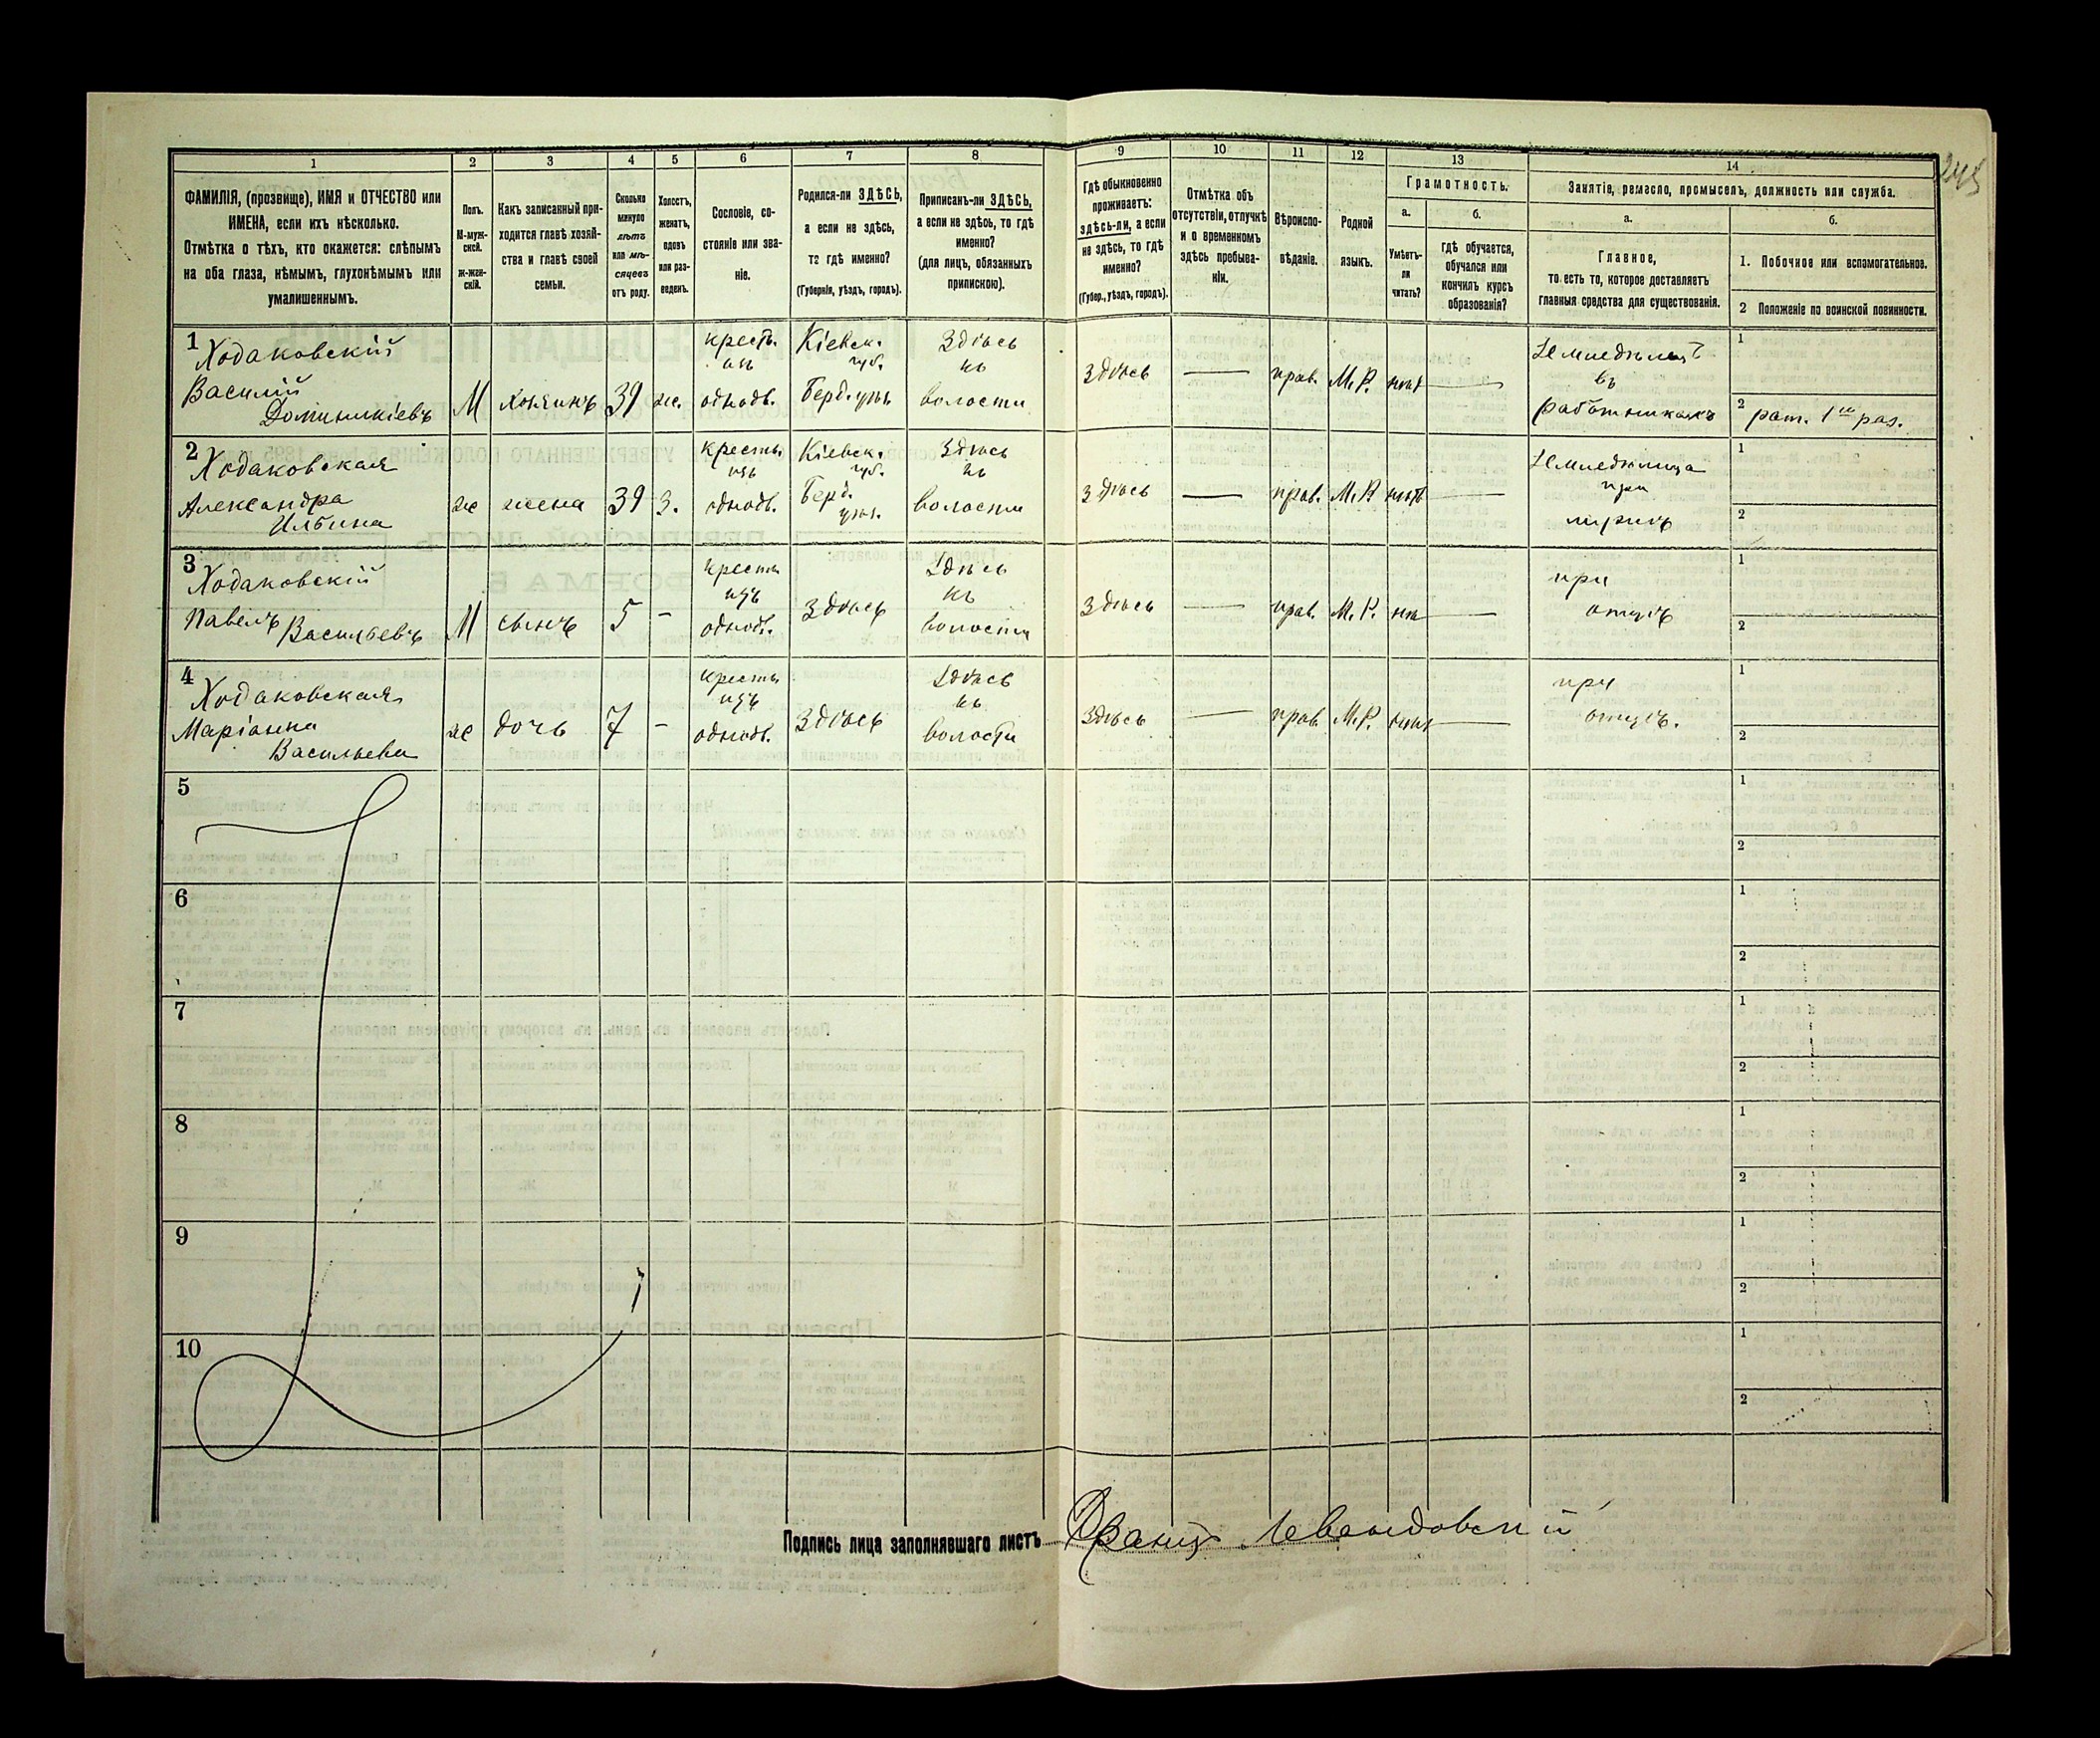 245
1 2 3 4 5 6 7 8 9 10 11 12 13 14
ФАМИЛІЯ, (прозвище), ИМЯ и ОТЧЕСТВО или
ИМЕНА, если ихъ нѣсколько.
Отмѣтка о тѣхъ, кто окажется: слѣпымъ
на оба глаза, нѣмымъ, глухонѣмымъ или
умалишеннымъ.
Полъ.
М-муж-
ской.
ж-жен-
скій.
Какъ записанный при-
ходится главѣ хозяй-
ства и главѣ своей
семьи.
Сколько
минуло
лѣтъ
или мѣ-
сяцевъ
отъ роду.
Холостъ,
женатъ,
вдовъ
или раз-
веденъ.
Сословіе, со-
стояніе или зва-
ніе.
Родился-ли ЗДѢСЬ,
а если не здѣсь,
то гдѣ именно?
(Губернія, уѣздъ, городъ).
Приписанъ-ли ЗДѢСЬ,
а если не здѣсь, то гдѣ
именно?
(для лицъ, обязанныхъ
припискою).
Гдѣ обыкновенно
проживаетъ:
здѣсь-ли, а если
не здѣсь, то гдѣ
именно?
(Губер., уѣздъ, городъ).
Отмѣтка объ
отсутствіи, отлучкѣ
и о временномъ
здѣсь пребыва-
ніи.
Вѣроиспо-
вѣданіе.
Родной
языкъ.
Грамотность.
а.
Умѣетъ-
ли
читать?
б.
гдѣ обучается,
обучался или
кончилъ курсъ
образованія?
Занятія, ремесло, промыселъ, должность или служба.
а.
Главное,
то есть то, которое доставляетъ
главныя средства для существованія.
б.
1. Побочное или вспомогательное.
2 Положеніе по воинской повинности.
1 Ходаковскій
Василій
Доминикіевъ
М
хозяинъ
39
ж.
крест.
изъ
однодв.
Кіевск.
губ.
Берд. уѣз.
Здѣсь
въ
волости
здѣсь
—
прав.
М. Р.
нѣт
—
Землед­ѣлецъ
въ
работникахъ
1
2 рат. 1го раз.
2 Ходаковская
Александра
Ильина
ж
жена
39
з.
кресть
изъ
однодв.
Кіевск.
губ.
Берд.
уѣз.
Здѣсь
въ
волости
здѣсь
—
прав.
М. Р
нѣтъ
—
при
1
2
3 Ходаковскій
Павелъ
Васильевъ
М
сынъ
5
-
кресть
изъ
однодв.
здѣсь
Здѣсь
въ
волости
здѣсь
—
прав.
М. Р.
—
при
отцѣ
1
2
4 Ходаковская
Маріанна
Васильева
ж
дочь
7
-
кресть
изъ
однодв.
здѣсь
Здѣсь
въ
волости
здѣсь
—
прав.
М. Р.
нѣт
—
при
отцѣ.
1
2
5
1
2
6
1
2
7
1
2
8
1
2
9
1
2
10
1
2
Подпись лица заполнявшаго листъ Францъ Левандовскій